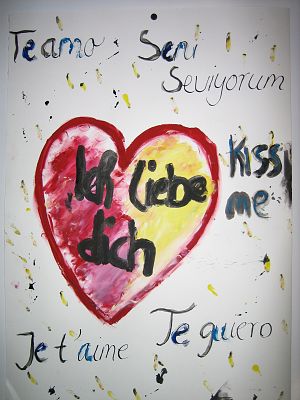 Te amo
Seni
Seviyorum
Kiss
me
Ich liebe
dich
Te quiero
Je t'aime